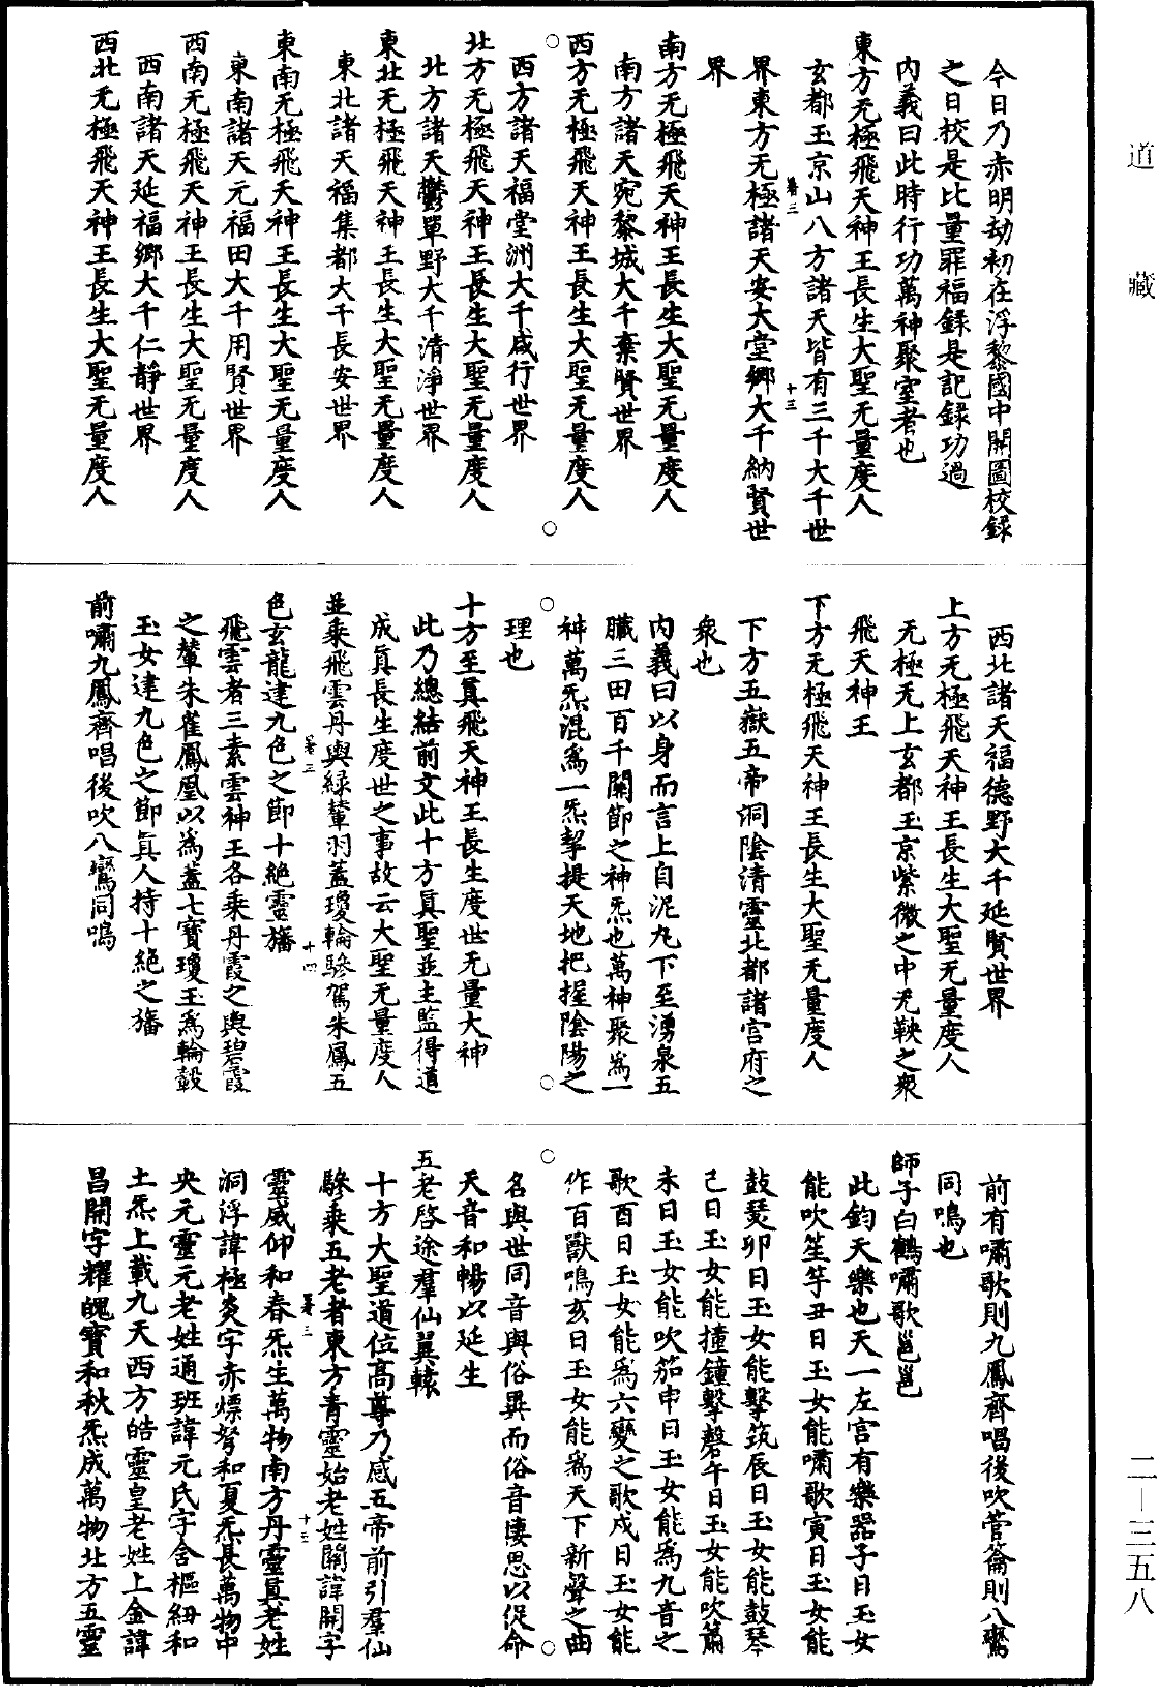 道藏
今日乃赤明劫初在浮黎國中開圖校錄
之日校是比量罪福錄是記錄功過
內義曰此時行功萬神聚室者也
東方无極飛天神王長生大聖无量度人
玄都玉京山八方諸天皆有三千大千世
卷三 十三
界東方无極諸天安大堂鄉大千納賢世
界
南方无極飛天神王長生大聖无量度人
南方諸天宛黎城大千棄賢世界
西方无極飛天神王長生大聖无量度人
西方諸天福堂洲大千咸行世界
北方无極飛天神王長生大聖无量度人
北方諸天鬱單野大千清淨世界
東北无極飛天神王長生大聖无量度人
東北諸天福集都大千長安世界
東南无極飛天神王長生大聖无量度人
東南諸天元福田大千用賢世界
西南无極飛天神王長生大聖无量度人
西南諸天延福鄉大千仁靜世界
西北无極飛天神王長生大聖无量度人
西北諸天福德野大千延賢世界
上方无極飛天神王長生大聖无量度人
无極无上玄都玉京紫微之中无鞅之衆
飛天神王
下方无極飛天神王長生大聖无量度人
下方五嶽五帝洞陰清靈北都諸宫府之
衆也
內義曰以身而言上自泥丸下至湧泉五
臟三田百千關節之神炁也萬神聚爲一
神萬炁混爲一炁挈提天地把握陰陽之
理也
十方至真飛天神王長生度世无量大神
此乃總結前文此十方真聖並主監得道
成真長生度世之事故云大聖无量度人
並乘飛雲丹輿綠輦羽蓋瓊輪驂駕朱鳳五
卷三 十四
色玄龍建九色之節十絕靈旛
飛雲者三素雲神王各乘丹霞之輿碧霞
之輦朱雀鳳凰以爲蓋七寶瓊玉爲輪轂
玉女建九色之節真人持十絕之旛
前嘯九鳳齊唱後吹八鸞同鳴
前有嘯歌則九鳳齊唱後吹管籥則八鸞
同鳴也
師子白鶴嘯歌邕邕
此鈞天樂也天一左宫有樂器子日玉女
能吹笙竽丑日玉女能嘯歌寅日玉女能
鼓瑟卯日玉女能擊筑辰日玉女能鼓琴
己日玉女能撞鐘擊磬午日玉女能吹簫
未日玉女能吹笳申日玉女能爲九音之
歌酉日玉女能爲六變之歌戍日玉女能
作百獸鳴亥日玉女能爲天下新聲之曲
名與世同音與俗異而俗音悽思以促命
天音和暢以延生
五老啓途羣仙翼轅
十方大聖道位高尊乃感五帝前引羣仙
驂乘五老者東方青靈始老姓閻諱開字
卷三 十三
靈威仰和春炁生萬物南方丹靈真老姓
洞浮諱極炎字赤熛弩和夏炁長萬物中
央元靈元老姓通班諱元氏字含樞紐和
土炁上載九天西方皓靈皇老姓上金諱
昌開字耀魄寶和秋炁成萬物北方五靈
二—三五八